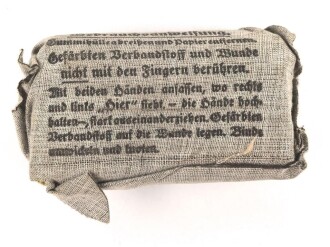 Gebrauchsanweisung.
Gummihülle abreißen und Papier entfernen.
Gefärbten Verbandstoff und Wunde
nicht mit den Fingern berühren.
Mit beiden Händen anfassen, wo rechts
und links „Hier" steht, – die Hände hoch
halten –, stark auseinanderziehen. Gefärbten
Verbandstoff auf die Wunde legen. Binde
umwickeln und knoten.